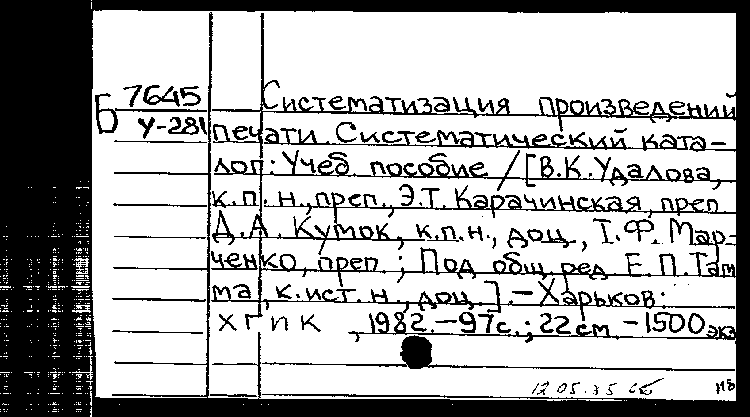 7645 Систематизация произведений
Б У-281 печати. Систематический ката-
лог: Учеб. пособие / [В.К.Удалова,
к.п.н., преп., Э.Т. Карачинская, преп
Д.А. Кумок, к.п.н., доц., Т.Ф. Мар-
ченко, преп.; Под общ. ред. Е.П.Там
ма, к.ист.н., доц.].-Харьков:
ХГИК, 1982.-97с.; 22см.-1500экз
12.05.85